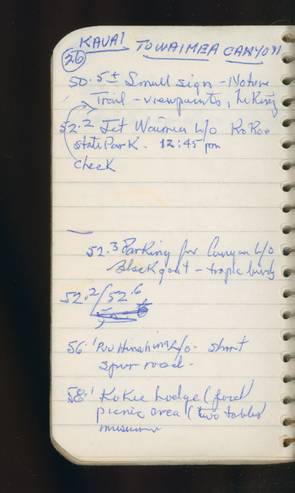 KAUAI TO WAIMEA CANYON
(26)
50.5± Small sign - Nature
Trail - viewpoints, hiking
52.2 Jct Waimea L/O Kokee
State Park. 12:45 pm
check
52.3 Parking for Canyon L/O
Black goat - tropic birds
52.2/52.6
56' Puu Hinahina L/O - short
spur road.
58' Kokee Lodge (food
picnic area (two tables
museum